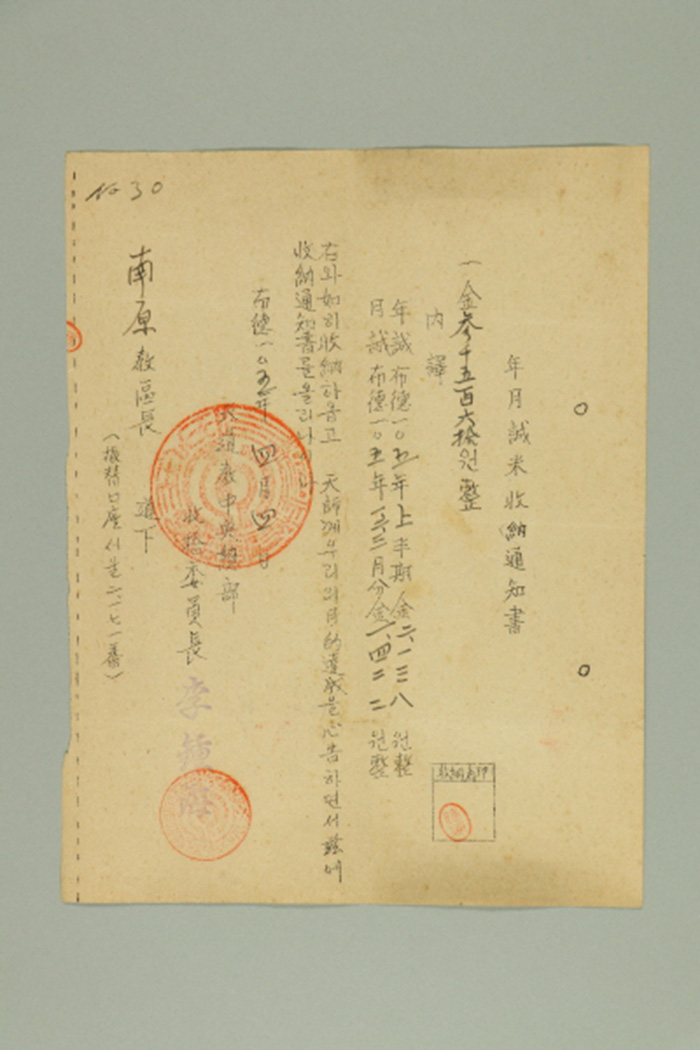 年月誠米收納通知書
一金參千五百六拾원整
內譯
年誠布德一〇五年上半期金二、一三八원整
月誠布德一〇五年一、二、三月分金一、四二二원整
右와如히收納하옵고 天師께우리의目的達成을心告하면서茲에
收納通知書를올리나이다
布德一〇五年四月四日
天道敎中央總部
收拾委員長 李鍾海
南原敎區長
道下
(振替口座서울二六一七一番)
No 30
收納者印